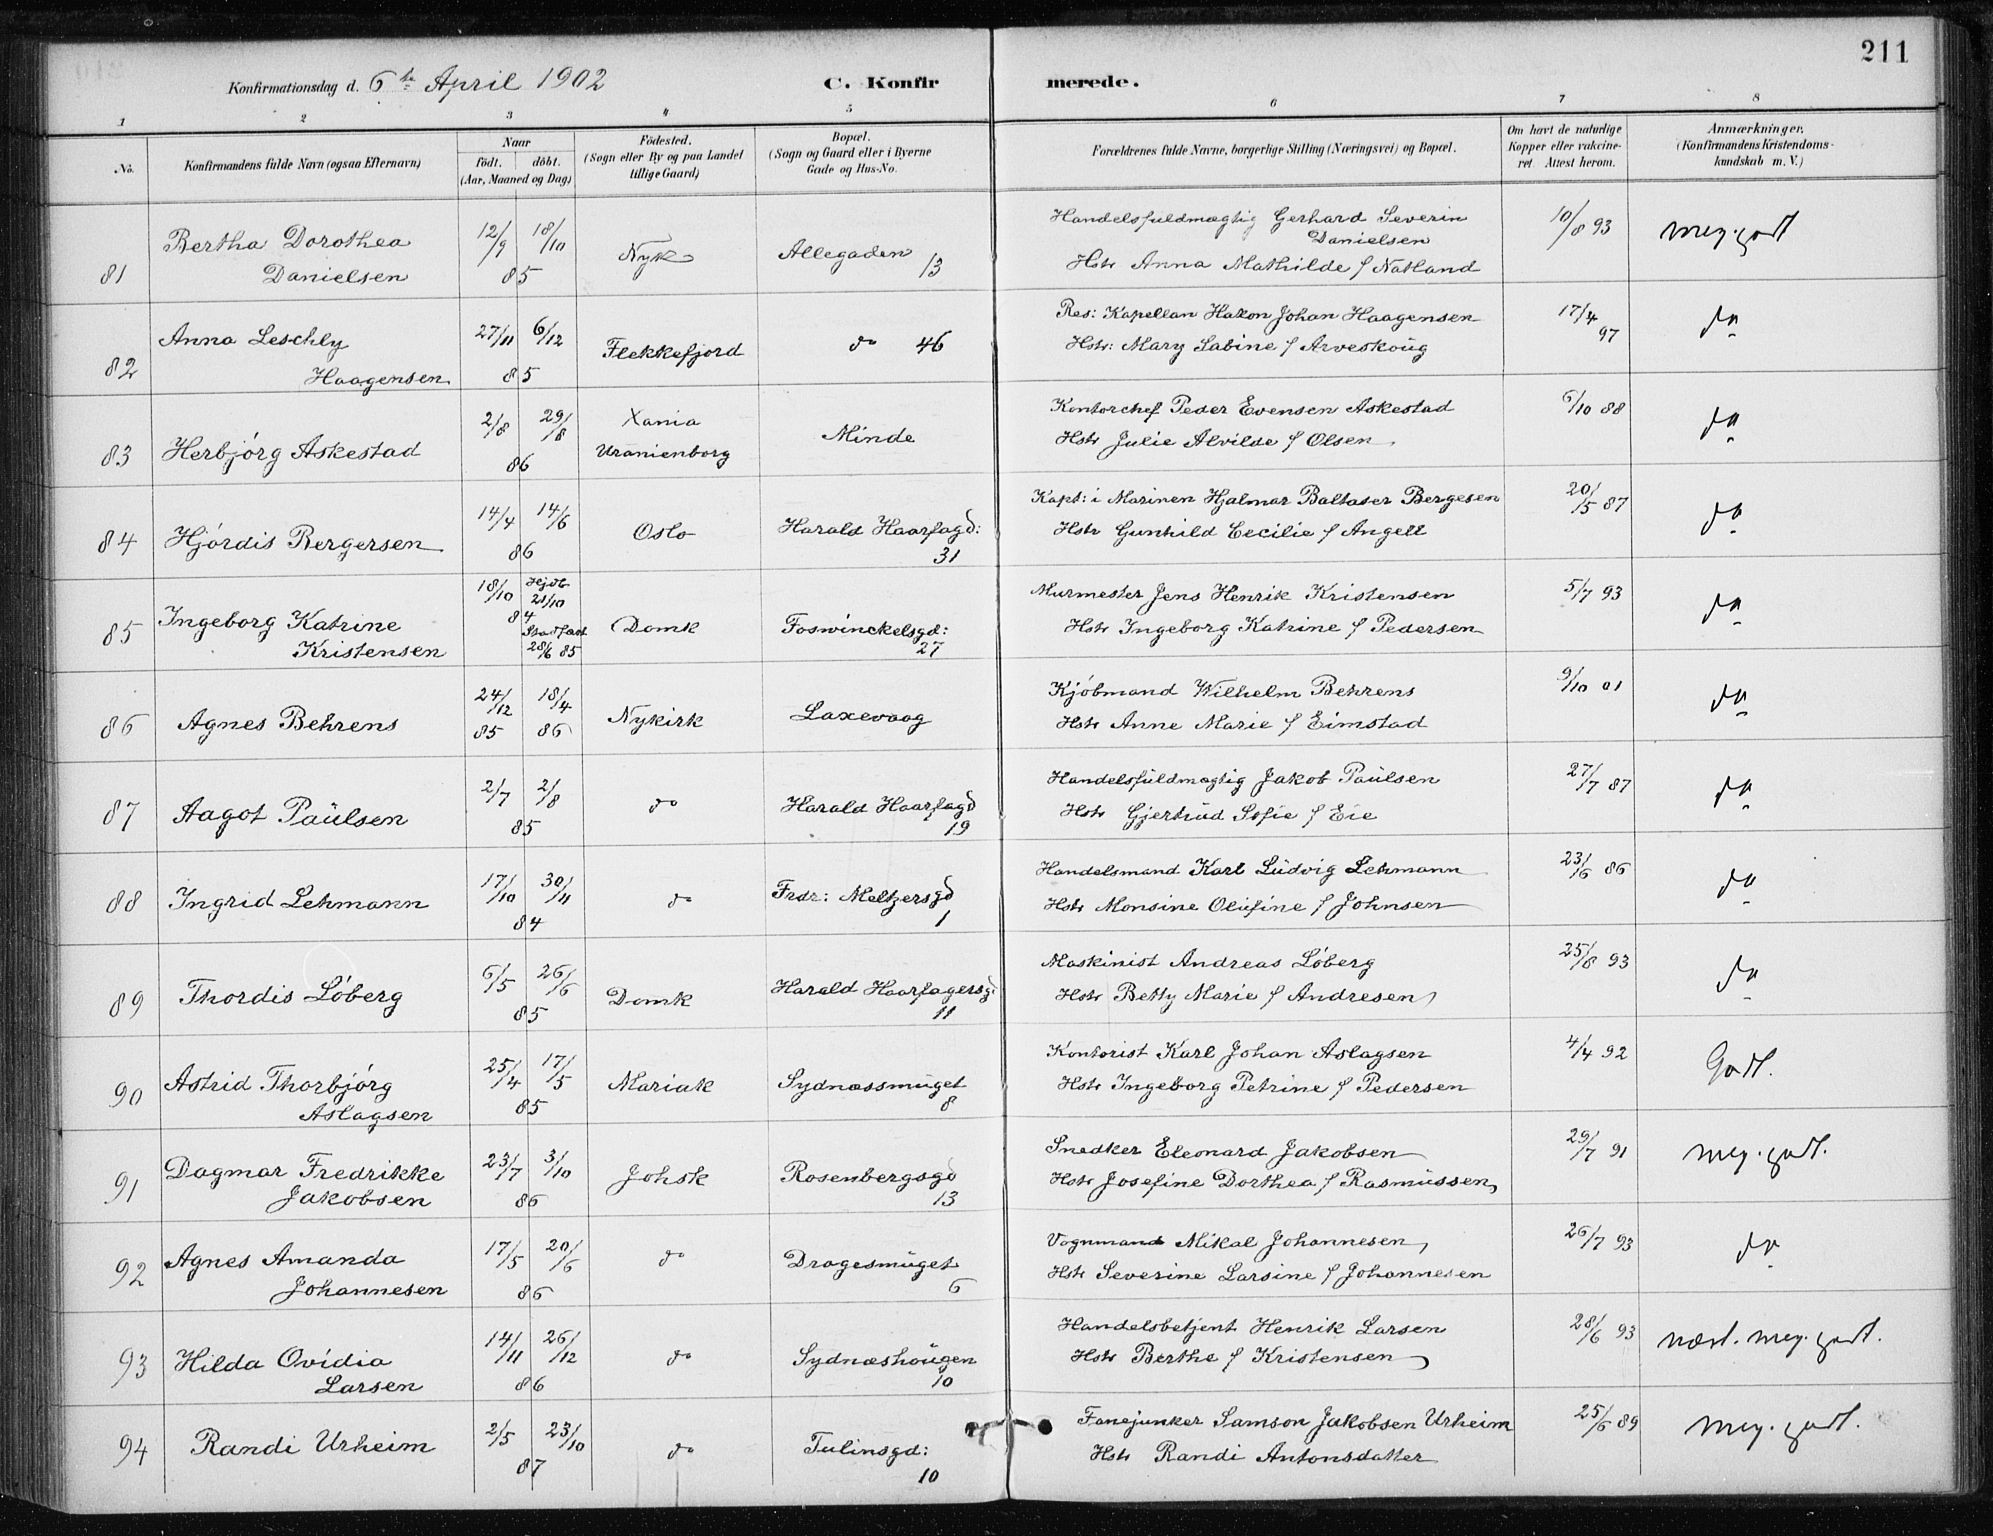 211
Konfirmationsdag d. 6te April 1902 C. Konfirmerede.
1 2 3 4 5 6 7 8
No. Konfirmandens fulde Navn (ogsaa Efternavn) Naar födt. döbt. (Aar, Maaned og Dag) Födested. (Sogn eller By og paa Landet tillige Gaard) Bopæl. (Sogn og Gaard eller i Byerne Gade og Hus-No. Forældrenes fulde Navne, borgerlige Stilling (Næringsvei) og Bopæl. Om havt de naturlige Kopper eller vakcineret. Attest herom. Anmærkninger. (Konfirmandens Kristendomskundskab m. V.)
81 Bertha Dorothea Danielsen 12/9 18/10 85 Nyk Allegaden 13 Handelsfuldmægtig Gerhard Severin Danielsen
Hstr Anna Mathilde f Natland 10/8 93 meg. godt
82 Anna Leschly Haagensen 27/11 6/12 85 Flekkefjord do 46 Res: Kapellan Hakon Johan Haagensen
Hstr: Mary Sabine f Arveskoug 17/4 97 do
83 Herbjörg Askestad 2/8 29/8 86 Xania Uranienborg Minde Kontorchef Peder Evensen Askestad
Hstr Julie Alvilde f Olsen 6/10 88 do
84 Hjördis Bergersen 14/4 14/6 86 Oslo Harald Haarfagd: 31 Kapt: i Marinen Hjalmar Baltaser Bergesen
Hstr Gunhild Cecilie f Angell 20/5 87 do
85 Ingeborg Katrine Kristensen 18/10 84 Hjdb 21/10 Stadfæst 28/6 85 Domk Foswinckelsgd: 27 Murmester Jens Henrik Kristensen
Hstr Ingeborg Katrine f Pedersen 5/7 93 do
86 Agnes Behrens 24/12 85 18/4 86 Nykirk Laxevaag Kjöbmand Wilhelm Behrens
Hstr Anne Marie f Eimstad 9/10 01 do
87 Aagot Paulsen 2/7 2/8 85 do Harald Haarfagd 19 Handelsfuldmægtig Jakob Paulsen
Hstr Gjertrud Sofie f Eie 27/7 87 do
88 Ingrid Lehmann 17/10 30/11 84 do Frdr: Meltzersgd 1 Handelsmand Karl Ludvig Lehmann
Hstr Monsine Olufine f Johnsen 23/6 86 do
89 Thordis Löberg 6/5 26/6 85 Domk Harald Haarfagersgd 11 Maskinist Andreas Löberg
Hstr Betty Marie f Andresen 25/8 93 do
90 Astrid Thorbjörg Aslagsen 25/4 17/5 85 Mariak Sydnæssmuget 8 Kontorist Karl Johan Aslagsen
Hstr Ingeborg Petrine f Pedersen 4/4 92 Godt.
91 Dagmar Fredrikke Jakobsen 23/7 3/10 86 Johsk Rosenbergsgd 13 Snedker Eleonard Jakobsen
Hstr Josefine Dorthea f Rasmussen 29/7 91 meg. godt.
92 Agnes Amanda Johannesen 17/5 20/6 86 do Dragesmuget 6 Vognmand Mikal Johannesen
Hstr Severine Larsine f Johannesen 26/7 93 do
93 Hilda Ovidia Larsen 14/11 26/12 86 do Sydnæshougen 10 Handelsbetjent Henrik Larsen
Hstr Berthe f Kristensen 28/6 93 næst. meg. godt.
94 Randi Urheim 2/5 23/10 87 do Tulinsgd: 10 Fanejunker Samson Jakobsen Urheim
Hstr Randi Antonsdatter 25/6 89 meg. godt.